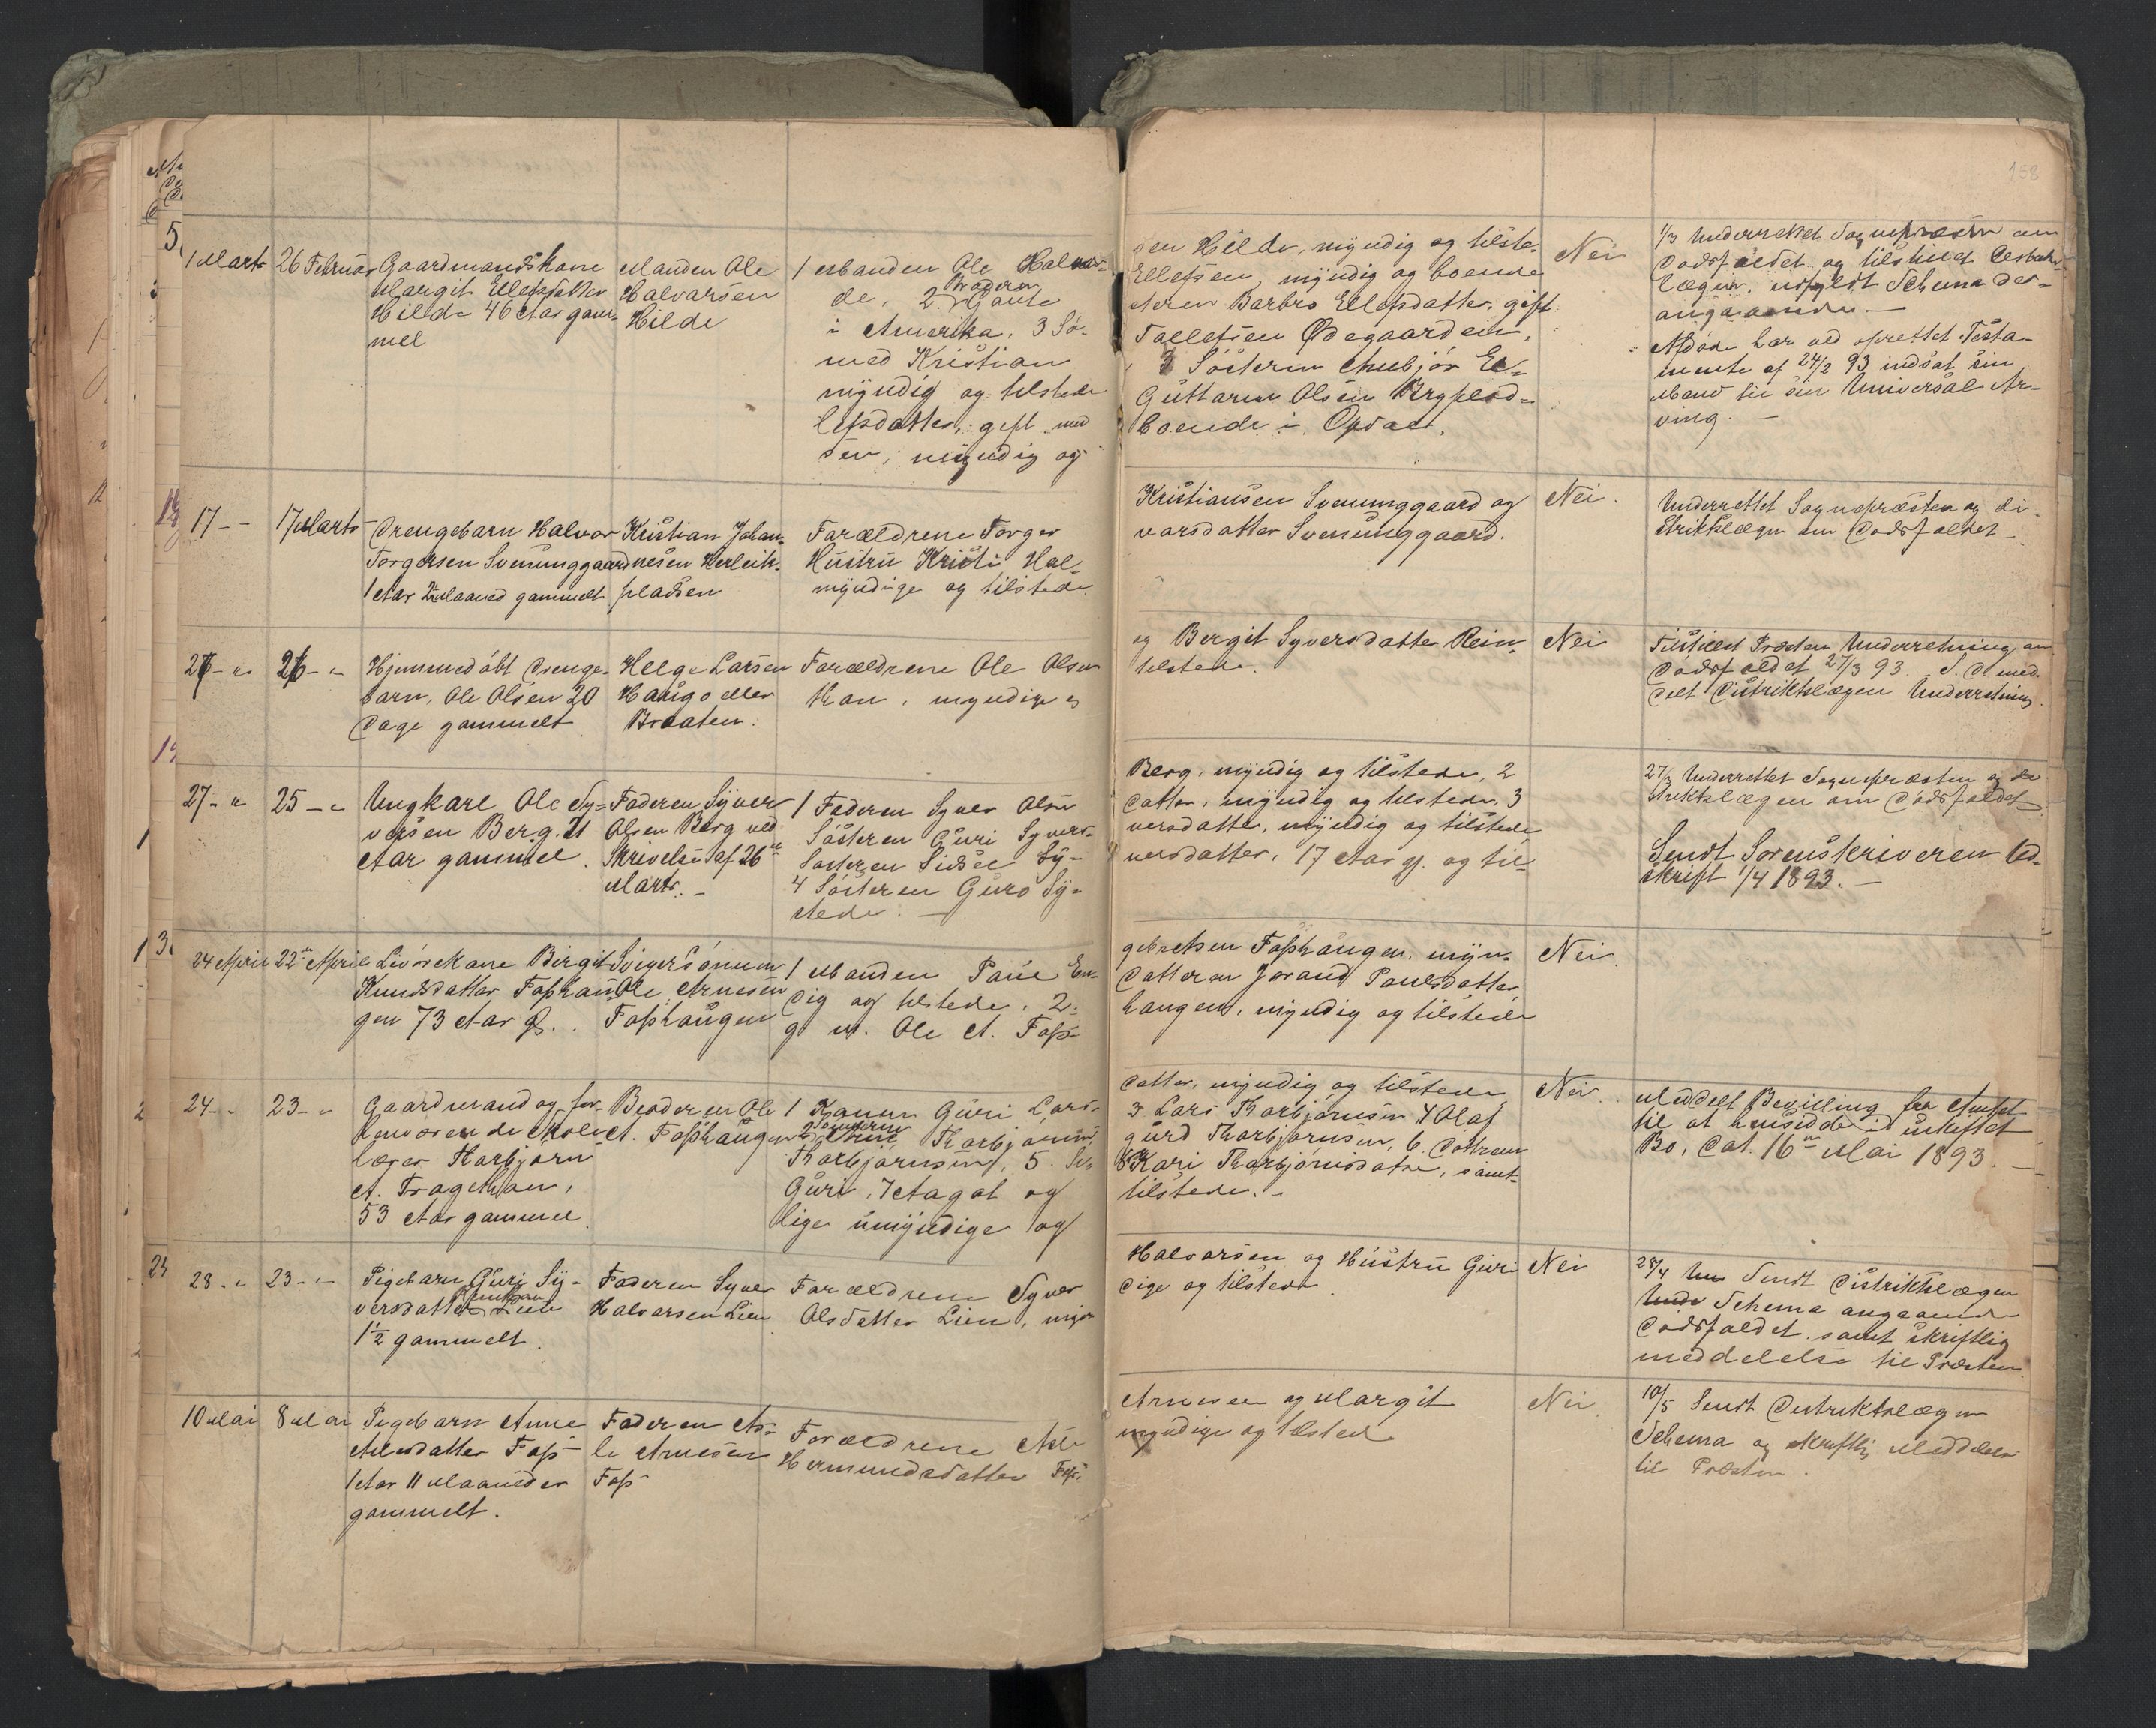 158
1 Marts
26 Februar
Gaardmandskone
Margit Ellefsdatter
Hilde 46 Aar gam-
mel
Manden Ole
Halvorsen
Hilde
1 Manden Ole Halvor-
de, 2 Broderen Gaute
i Amerika, 3 Sö-
med Kristian
myndig og tilstede
lefsdatter, gift med
sen, myndig og
sen Hilde, myndig og tilste-
Ellefsen, myndig og boende
steren Barbro Ellefsdatter, gift
Tollefsen Ødegaarden,
3 Sösteren Anbjör El-
Guttorm Olsen
boende i Opdal.
Nei
1/3 Underrettet Sognepræsten om
Dödsfaldet og tilstillet
lægen udfyldt Schema der-
angaaende. —
Afdöde har ved oprettet Testa-
mente af 24/2 93 indsat sin
Mand til sin Universal Ar-
ving. —
17 - -
17 Marts
Drengebarn Halvor
Torgersen Svenunggaard
1 Aar 2 Maaned gammelt
Kristian Johan-
nesen Herleik-
pladsen
Forældrene Torger
Hustru Kristi Hal-
myndige og tilstede.
Kristiansen Svenunggaard og
vorsdatter Svenunggaard.
Nei.
Underrettet Sognepræsten og di-
striktslægen om Dödsfaldet
26 - "
26 - "
Hjemmedöbt Drenge-
barn, Ole Olsen 20
Dage gammelt
Helge Larsen
Haugo eller
Braaten.
Forældrene Ole Olsen
Kan, myndige og
og Bergit Syversdatter Rein-
tilstede.
Nei
Tilstillet Præsten Underretning om
Dödsfaldet 27/3 93. S. D. med-
delt Distriktslægen Underretning.
27 - "
25 - "
Ungkarl Ole Sy-
versen Berg. 21
Aar gammel.
Faderen Syver
Olsen Berg ved
Skrivelse af 26de
Marts. -
1 Faderen Syver Olsen
Sösteren Guri Syvers-
Sösteren Sidsel Sy-
4 Sösteren Guro Sy-
stede. —
Berg, myndig og tilstede, 2
datter, myndig og tilstede, 3
versdatter, myndig og tilstede
versdatter, 17 Aar g. og til-
27/3 Underrettet Sognepræsten og di-
striktslægen om Dödsfaldet
Sendt Sorenskriveren Ud-
skrift 1/4 1893. —
24 April
22de April
Livörekone Birgit
Knudsdatter Fosshau-
gen 73 Aar g.
Svigersönnen
Ole Arnesen
Fosshaugen
1 Manden Paul En-
dig og tilstede, 2
g. m. Ole A. Foss-
gebretsen Fosshaugen, myn-
Datteren Jorand Paulsdatter,
haugen, myndig og tilstede
Nei.
24 - "
23 - "
Gaardmand og for-
henværende Skole-
lærer Thorbjörn
A. Tragethon,
53 Aar gammel
Broderen Ole
A. Fosshaugen
1 Konen Guri Lars-
2 Sönnerne Arne Thorbjörnsen,
Thorbjörnsen, 5. Si-
Guri, 7 Aagot og
lige umyndige og
datter, myndig og tilstede
3 Lars Thorbjörnsen 4 Olaf
gurd Thorbjörnsen, 6. Döttrene
8 Kari Thorbjörnsdatre, samt-
tilstede. -
Nei.
Meddelt Bevilling fra Amtet
til at hensidde i uskiftet
Bo, Dat. 16de Mai 1893. —
28 - "
23 - "
Pigebarn Guri Sy-
versdatter Lien
1½ gammelt.
Faderen Syver
Halvorsen Lien
Forældrene Syver
Olsdatter Lien, myn-
Halvorsen og Hustru Guri
dige og tilstede.
Nei
28/4 Sendt Distriktslægen
Schema angaaende
Dödsfaldet samt skriftlig
meddelelse til Præsten
10 Mai
8 Mai
Pigebarn Anne
Aslesdatter Foss
1 Aar 11 Maaneder
gammelt.
Faderen As-
le Arnesen
Foss
Forældrene Asle
Hermundsdatter Foss,
Arnesen og Margit
myndige og tilstede
Nei.
10/5 Sendt Distriktslægen
Schema og skriftlig Meddelelse
til Præsten.